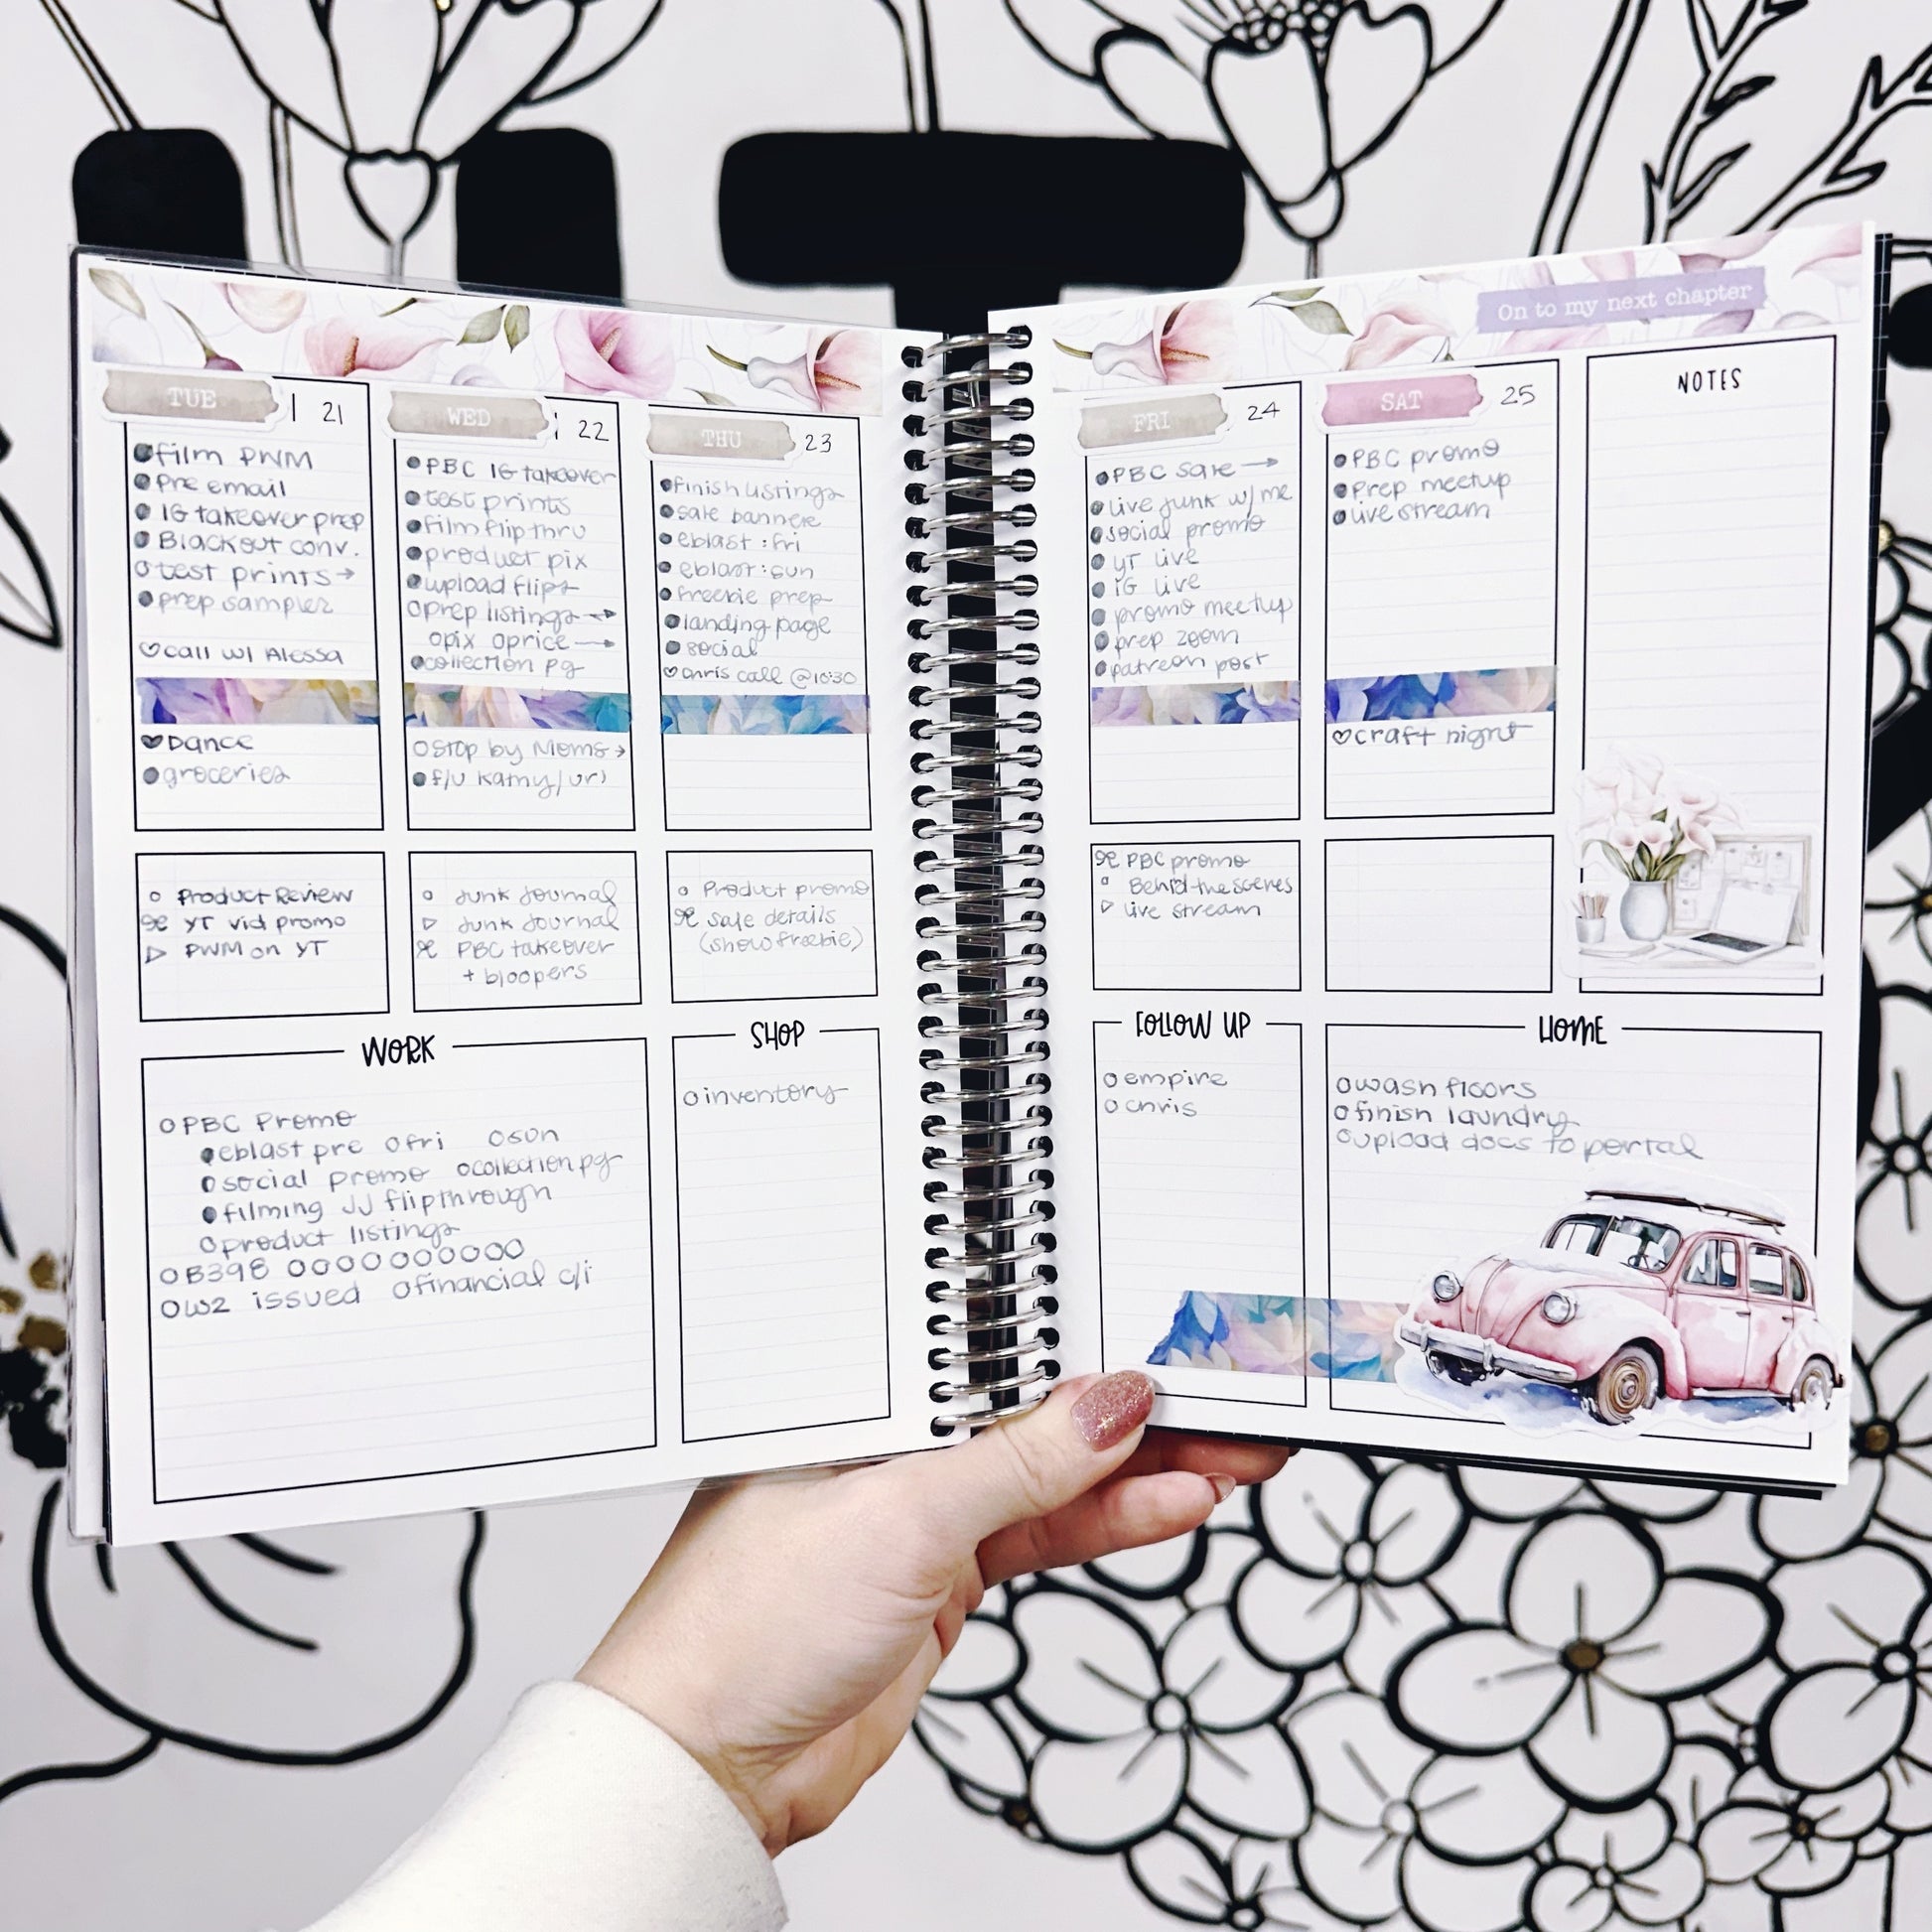 On to my next chapter
TUE 21
film PWM
pre email
IG takeover prep
Blackout conv.
test prints →
prep sampler
call w/ Alessa
Dance
groceries
Product Review
YT vid promo
PWM on YT
WED 22
PBC IG takeover
test prints
film flip thru
product pix
upload flips
prep listings →
pix price →
collection pg
Stop by Moms →
f/u
Junk Journal
Junk Journal
PBC takeover
+ bloopers
THU 23
finish listings
sale banner
eblast: fri
eblast: sun
freebie prep
landing page
social
Chris call @10:30
Product promo
sale details
(show freebie)
WORK
PBC Promo
eblast pre fri sun
social promo collection pg
filming JJ flipthrough
product listings
B398
W2 issued financial c/i
SHOP
inventory
FRI 24
PBC sale →
live junk w/ me
social promo
YT live
IG live
promo meetup
prep zoom
patreon post
PBC promo
Behind the scenes
live stream
SAT 25
PBC promo
prep meetup
live stream
craft night
NOTES
FOLLOW UP
empire
chris
HOME
wash floors
finish laundry
upload docs to portal